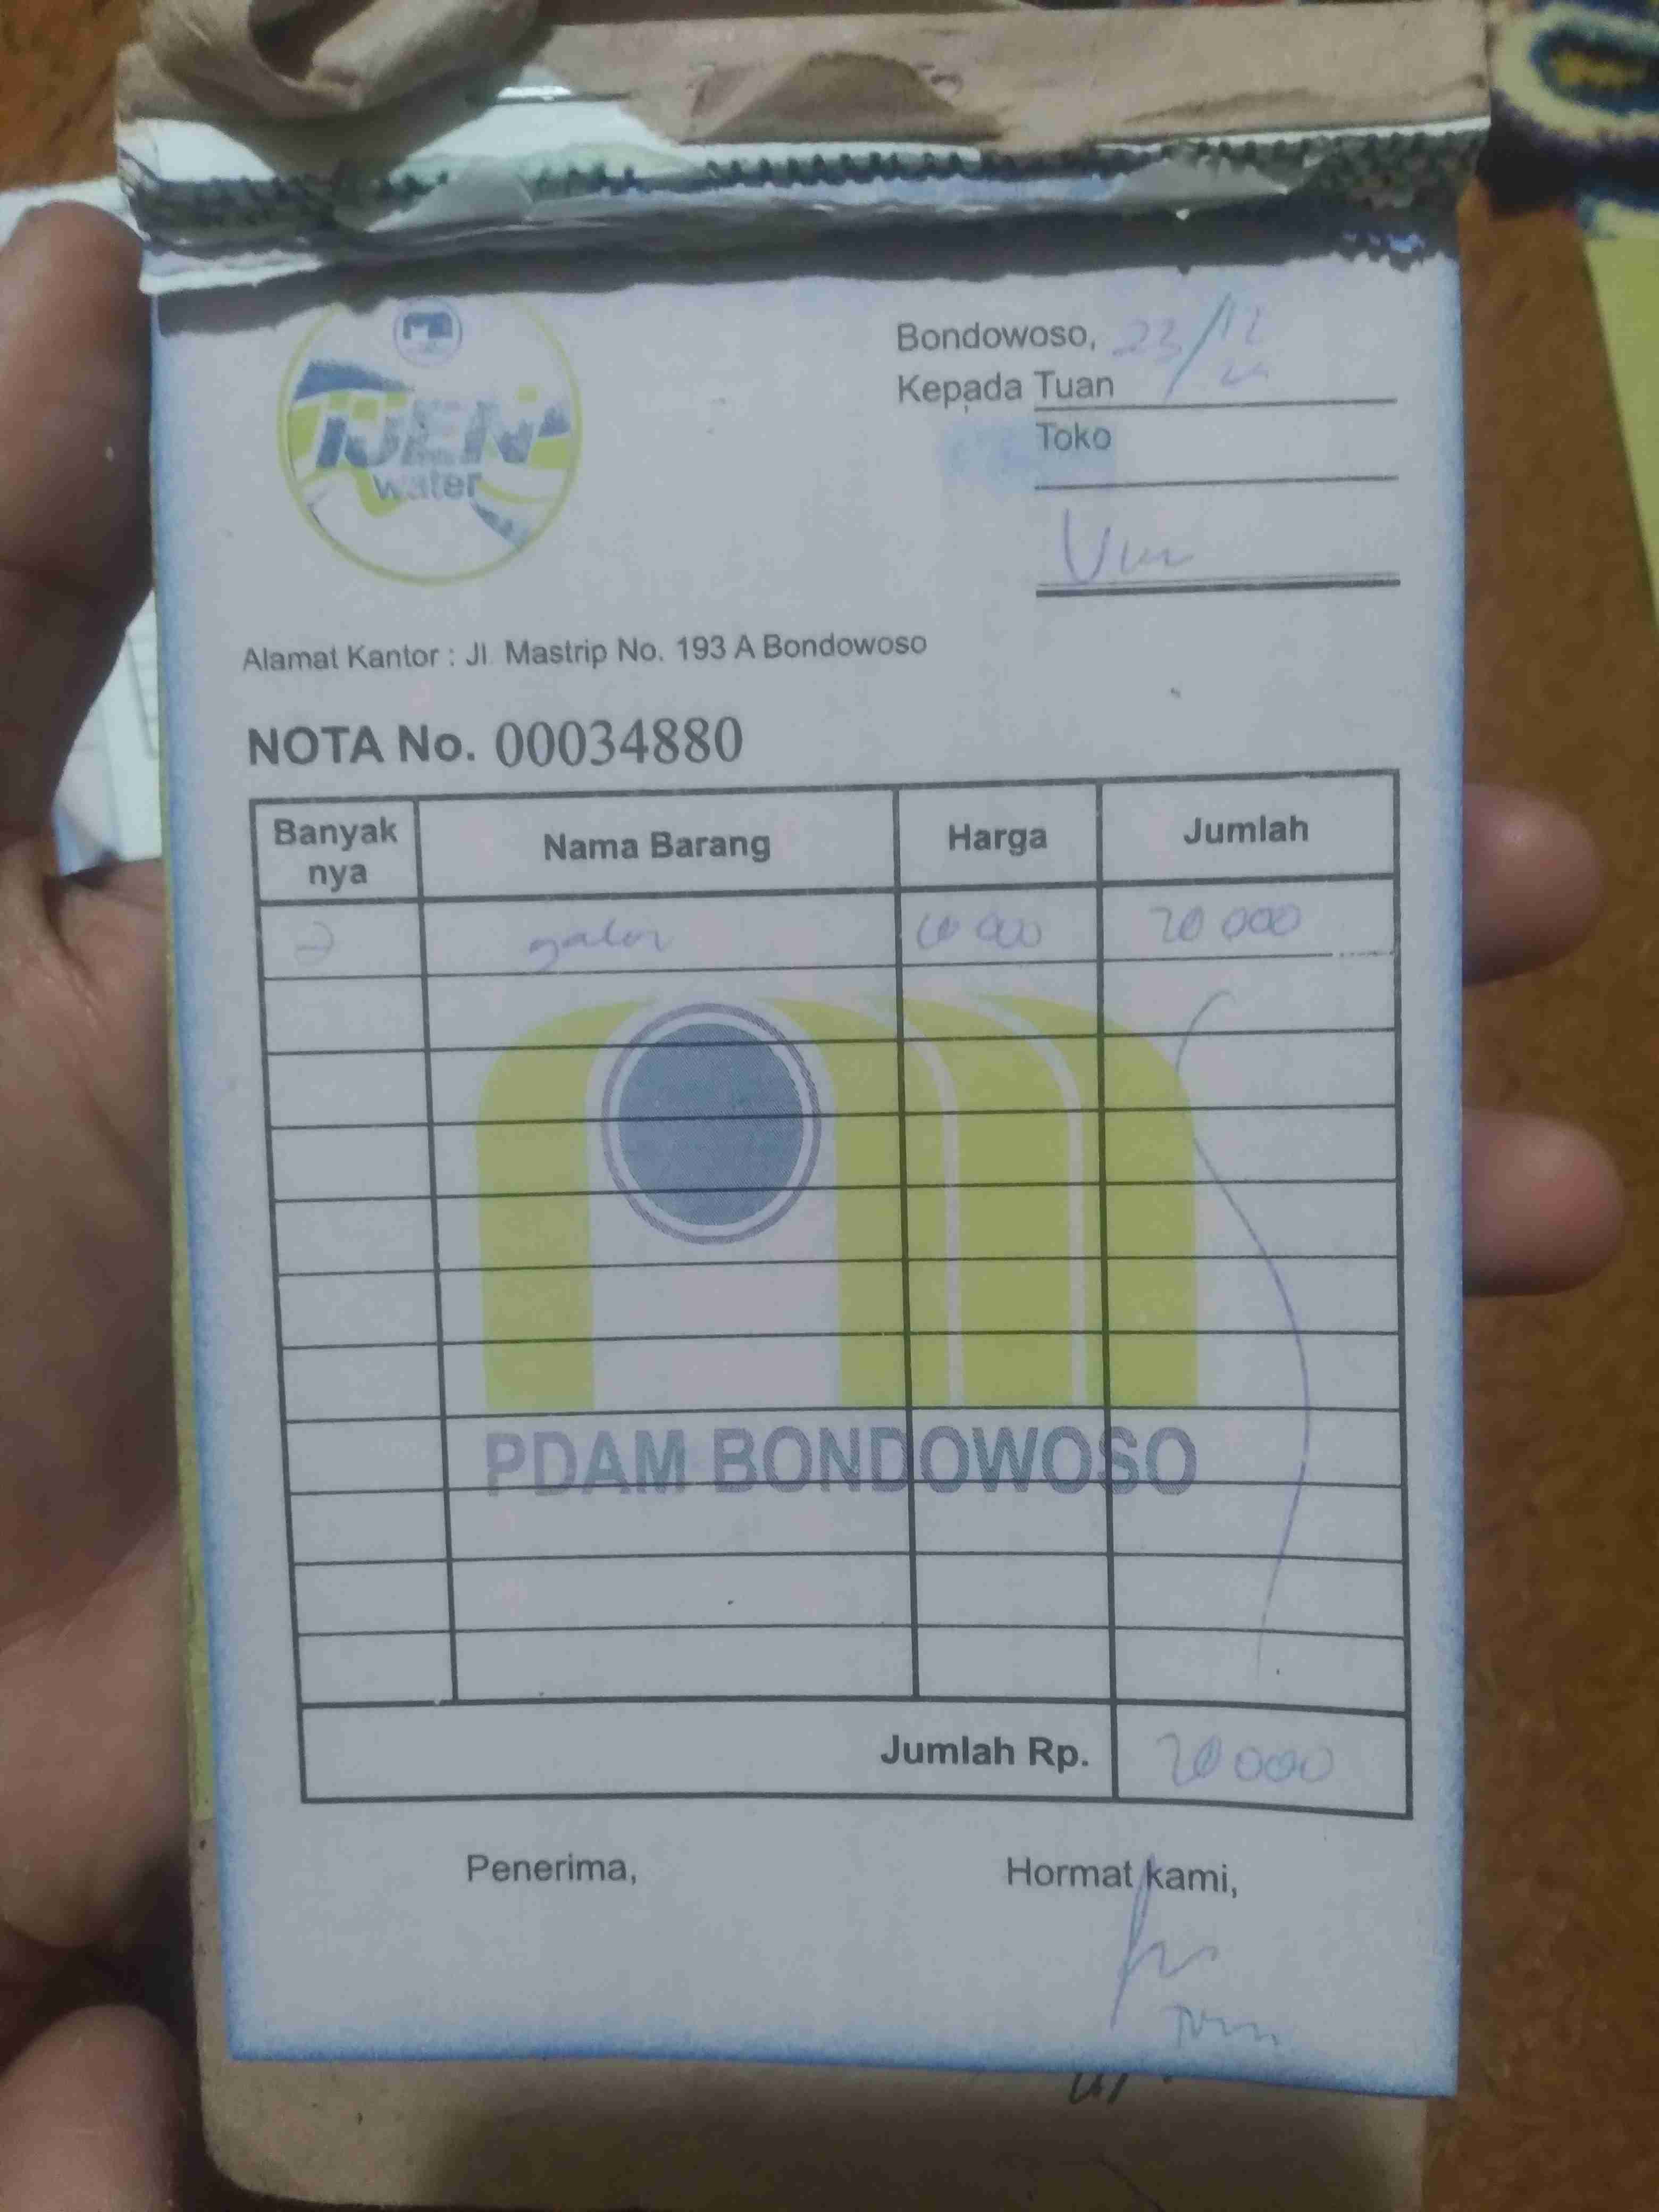 IJEN
water
Bondowoso, 23/12
Kepada Tuan
Toko
Alamat Kantor : Jl. Mastrip No. 193 A Bondowoso
NOTA No. 00034880
Banyak nya Nama Barang Harga Jumlah
2 galon 10 000 20 000
PDAM BONDOWOSO
Jumlah Rp. 20 000
Penerima, Hormat kami,